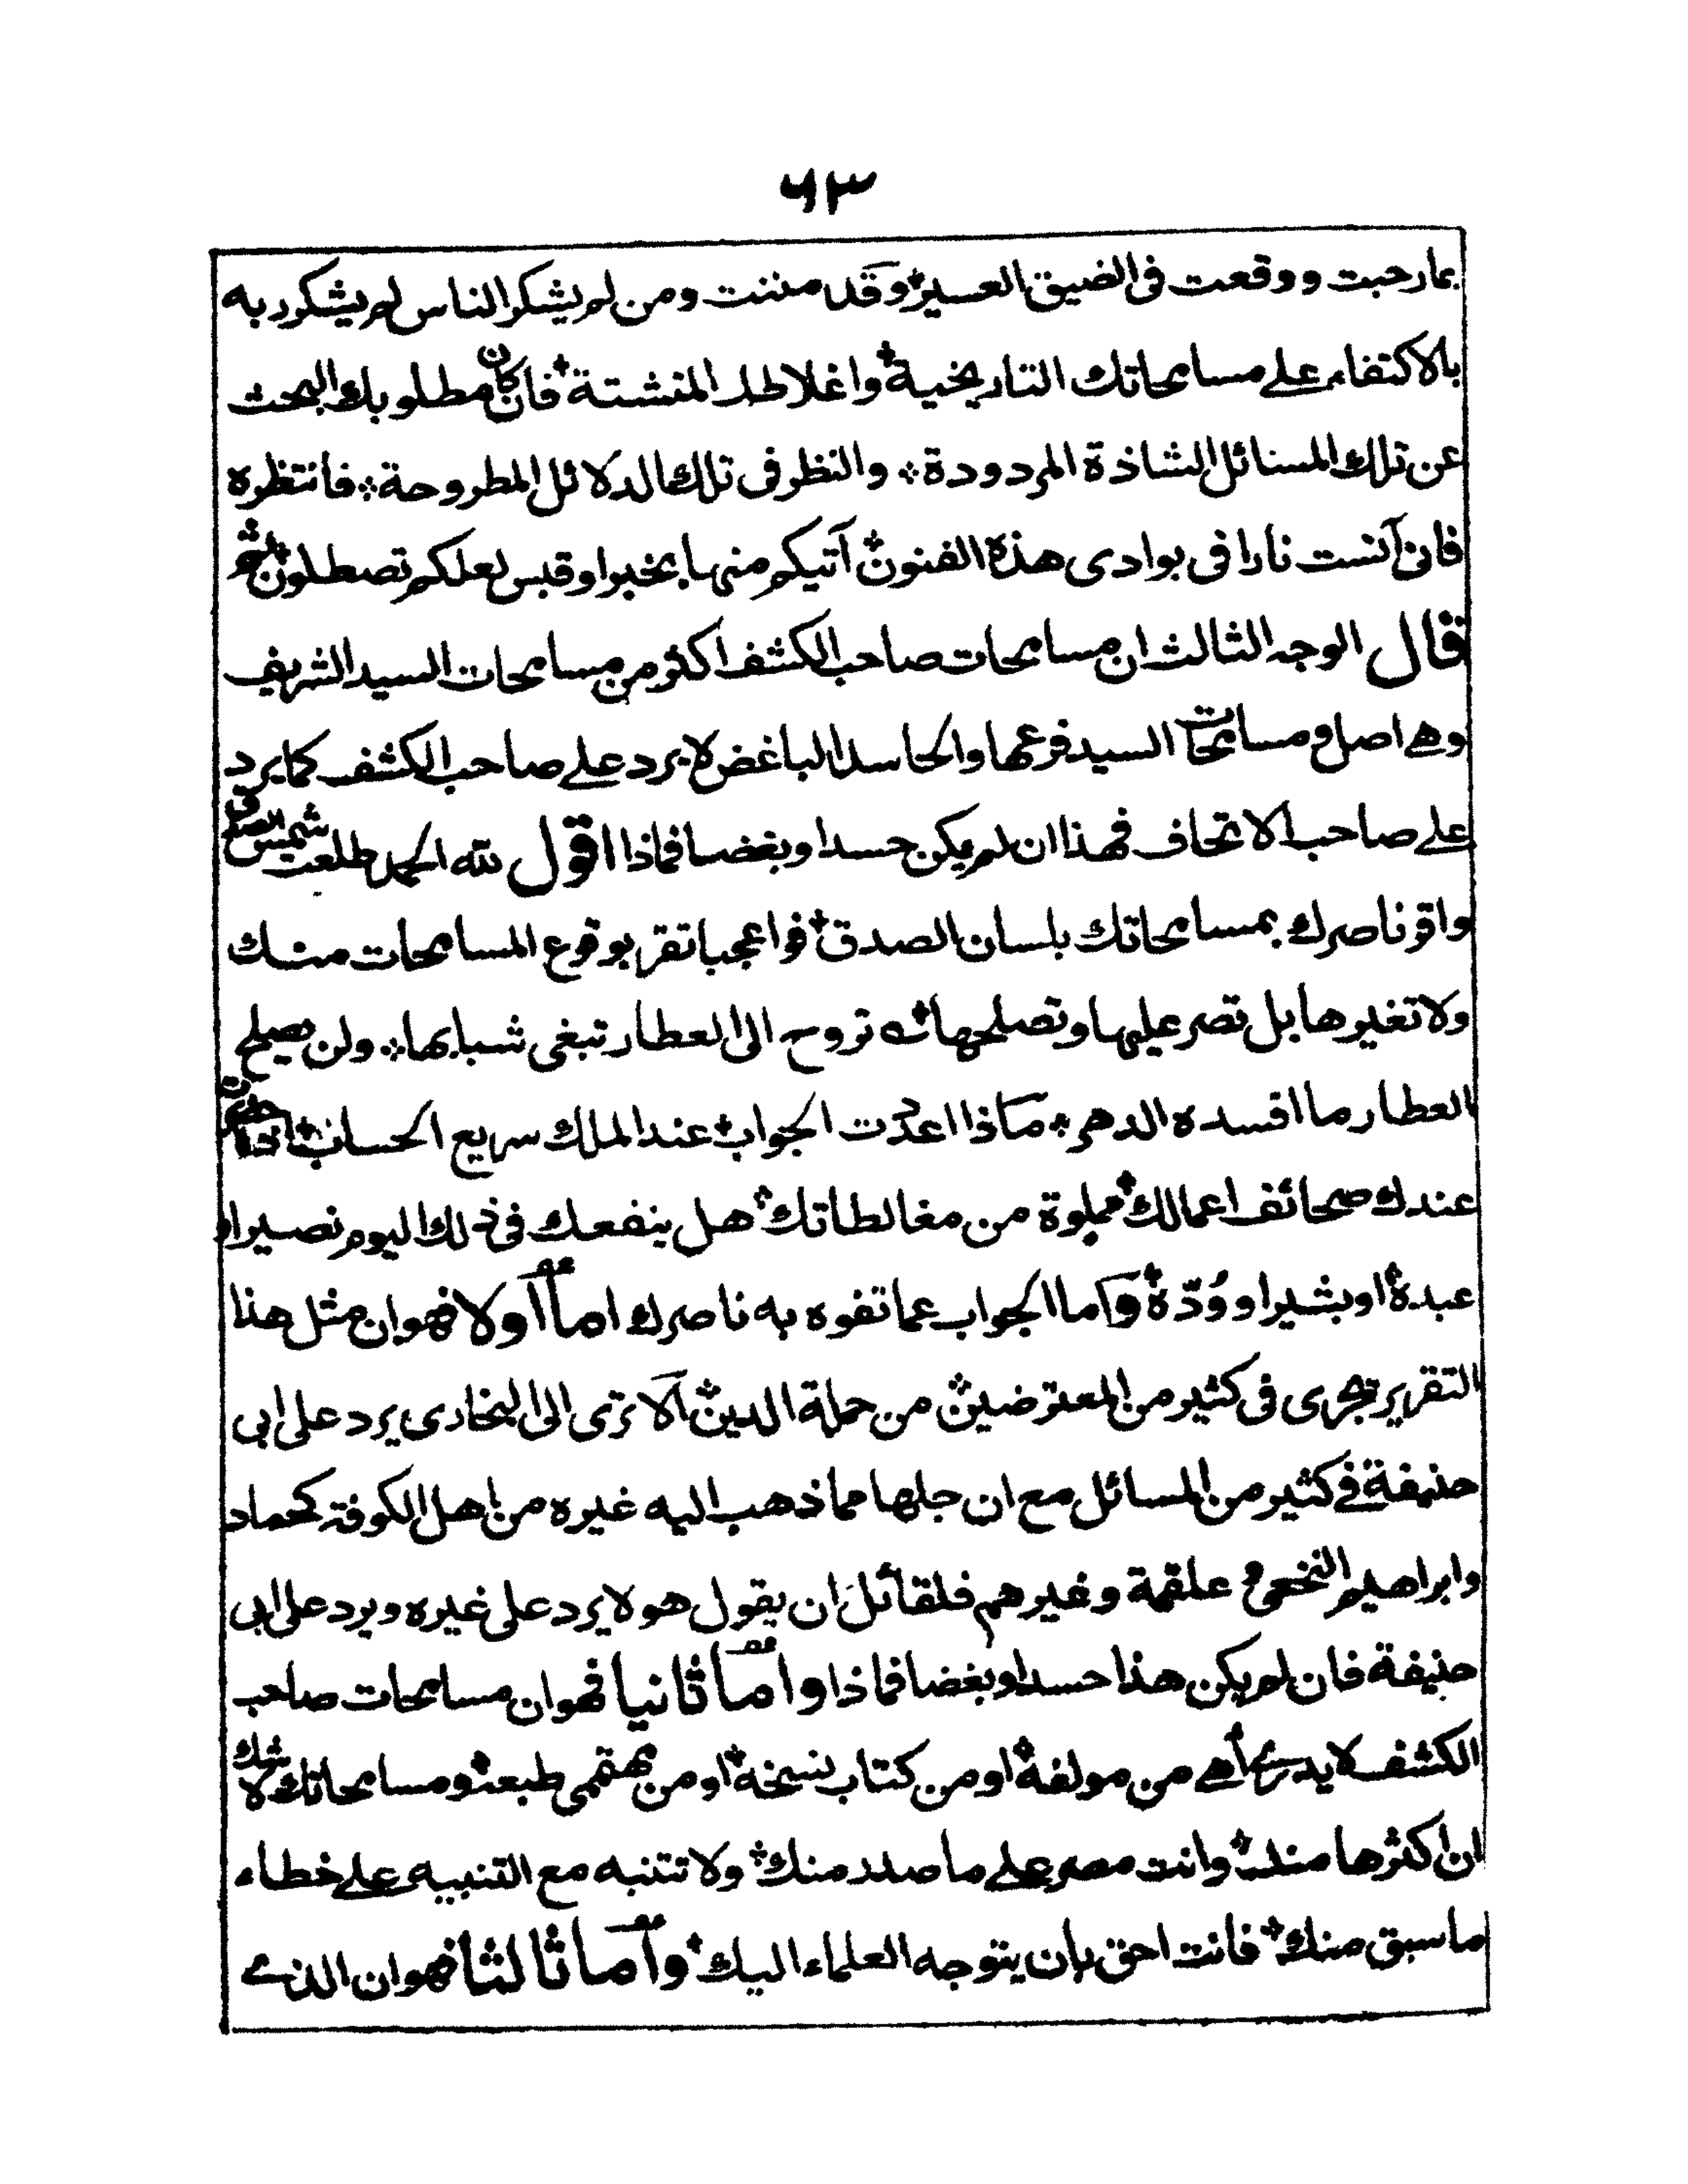 ٦٣
بما رحبت ووقعت فى الضيق العسير وقد مننت ومن لم يشكر الناس لم يشكر ربه
بالاكتفاء على مسامحاتك التاريخية واغلاطك المنشتة فان كان مطلوبك البحث
عن تلك المسائل الشاذة المردودة والنظر فى تلك الدلائل المطروحة فانتظره
فانى آنست نارا فى بوادى هذه الفنون آتيكم منها بخبر او قبس لعلكم تصطلون
قال الوجه الثالث ان مسامحات صاحب الكشف اكثر من مسامحات السيد الشريف
وهے اصل ومسامحات السيد فرعها والحاسد الباغض لا يرد علے صاحب الكشف كما يرد
علے صاحب الاتحاف فهذا ان لم يكن حسدا وبغضا فماذا اقول لله الحمد طلعت شمس الصدق
واقر ناصرك بمسامحاتك بلسان الصدق فوا عجبا تقر بوقوع المسامحات منك
ولا تغيرها بل تصر عليها وتصلحها ؎ تروح الى العطار تبغى شبابها ولن يصلح
العطار ما افسده الدهر ماذا اعددت الجواب عند الملك سريع الحساب اذا
عندك صحائف اعمالك مملوة من مغالطاتك هل ينفعك فى ذلك اليوم نصير او
عبدة او بشير او ودّة واما الجواب عما تفوه به ناصرك اما اولا فهو ان مثل هذا
التقرير تجرى فى كثير من المعترضين من حملة الدين الا ترى الى البخارى يرد على ابى
حنيفة فے كثير من المسائل مع ان جلها مما ذهب اليه غيره من اهل الكوفة كحماد
وابراهيم النخعى و علقمة وغيرهم فلقائل ان يقول هو لا يرد على غيره ويرد على ابى
حنيفة فان لم يكن هذا حسدا وبغضا فماذا واما ثانيا فهو ان مسامحات صاحب
الكشف لا يدرى أهے من مولفه او من كتاب نسخه او من مهتمى طبعه ومسامحاتك لا شك
ان اكثرها منك وانت مصر علے ما صدر منك ولا تتنبه مع التنبيه علے خطاء
ما سبق منك فانت احق بان يتوجه العلماء اليك واما ثالثا فهو ان الذے